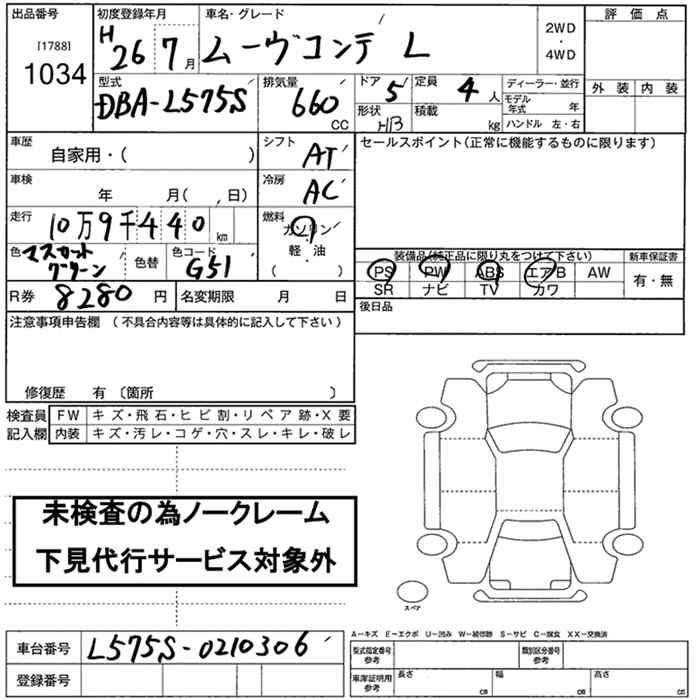 出品番号
[1788]
1034
初度登録年月
H 26 7 月
車名・グレード
ムーヴコンテ L
2WD
・
4WD
評価点
外装 内装
型式
DBA-L575S
排気量
660
CC
ドア 5
定員 4 人
形状 HB
積載 kg
ディーラー・並行
モデル年式 年
ハンドル 左・右
車歴
自家用・( )
シフト
AT
セールスポイント(正常に機能するものに限ります)
車検
年 月( , 日)
冷房
AC
走行
10万9千440 km
燃料
ガソリン
軽・油
( )
色 マスカットグリーン
色替
色コード
G51
装備品(純正品に限り丸をつけて下さい)
新車保証書
PS PW ABS エアB AW
有・無
SR ナビ TV カワ
R券 8280 円
名変期限 月 日
後日品
注意事項申告欄 (不具合内容等は具体的に記入して下さい)
修復歴 有 〔箇所 〕
検査員
記入欄
FW キズ・飛石・ヒビ割・リペア跡・X要
内装 キズ・汚レ・コゲ・穴・スレ・キレ・破レ
未検査の為ノークレーム
下見代行サービス対象外
スペア
A―キズ E―エクボ U―凹み W―補修跡 S―サビ C―腐食 XX―交換済
車台番号 L575S-0210306
登録番号
型式指定番号
参考
類別区分番号
参考
車庫証明用
参考
長さ cm
幅 cm
高さ cm